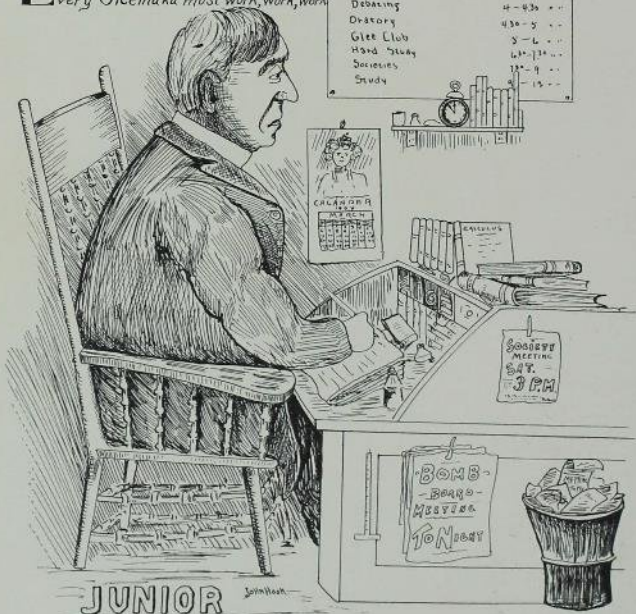 very Sicemaka must work, work, work
Debating 4-430 " "
Oratory 430-5 " "
Glee Club 5-6 " "
Hard Study
Societies
Study
CALANDAR
MARCH
CALCULUS
SOCIETY
MEETING
SAT.
3 P.M
-BOMB-
-BOARD-
MEETING
TO NIGHT
JUNIOR
John Hook